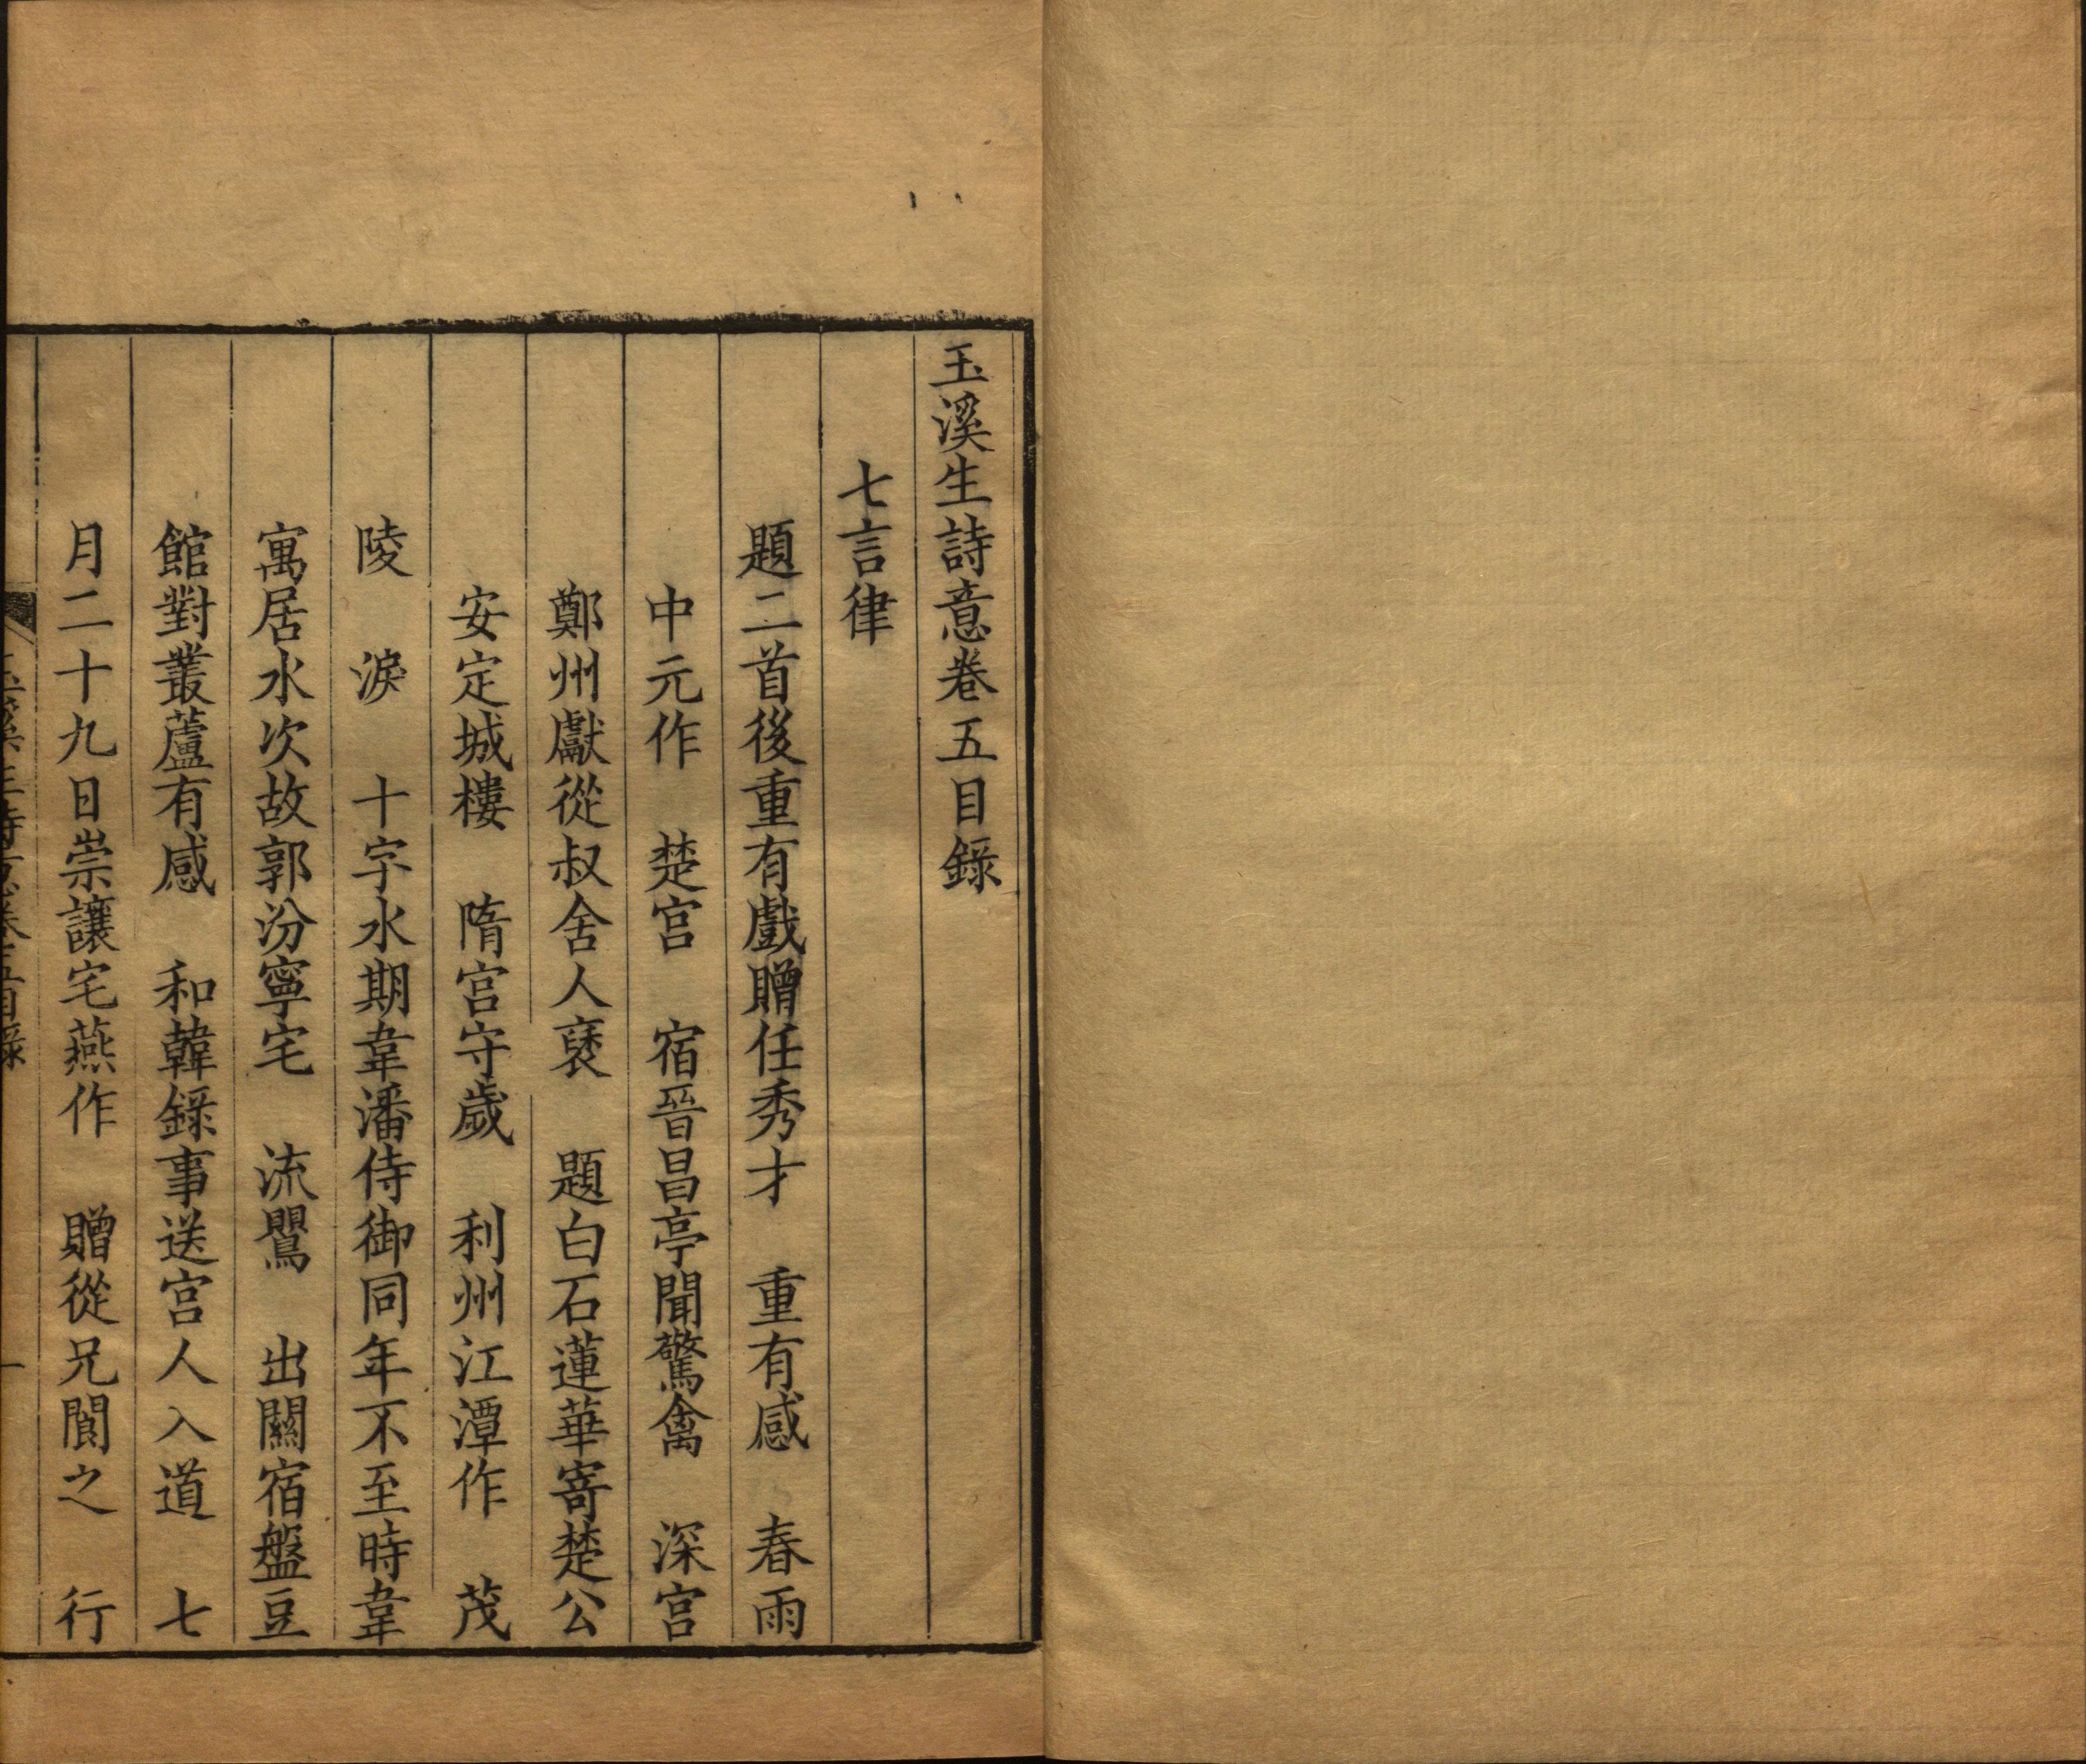 玉溪生詩意卷五目錄
七言律
題二首後重有戲贈任秀才　重有感　春雨
中元作　楚宮　宿晉昌亭聞驚禽　深宮
鄭州獻從叔舍人褎　題白石蓮華寄楚公
安定城樓　隋宮守歲　利州江潭作　茂
陵　淚　十字水期韋潘侍御同年不至時韋
寓居水次故郭汾寧宅　流鶯　出關宿盤豆
館對叢蘆有感　和韓錄事送宮人入道　七
月二十九日崇讓宅燕作　贈從兄閬之　行